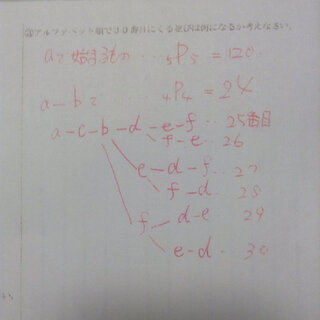 ③アルファベット順で30番目にくる並びは何になるか考えなさい。
aで始まるもの … ₅P₅ = 120.
a-bで … ₄P₄ = 24
a-c-b-d-e-f … 25番目
f-e … 26
e-d-f … 27
f-d … 28
f d-e … 29
e-d … 30